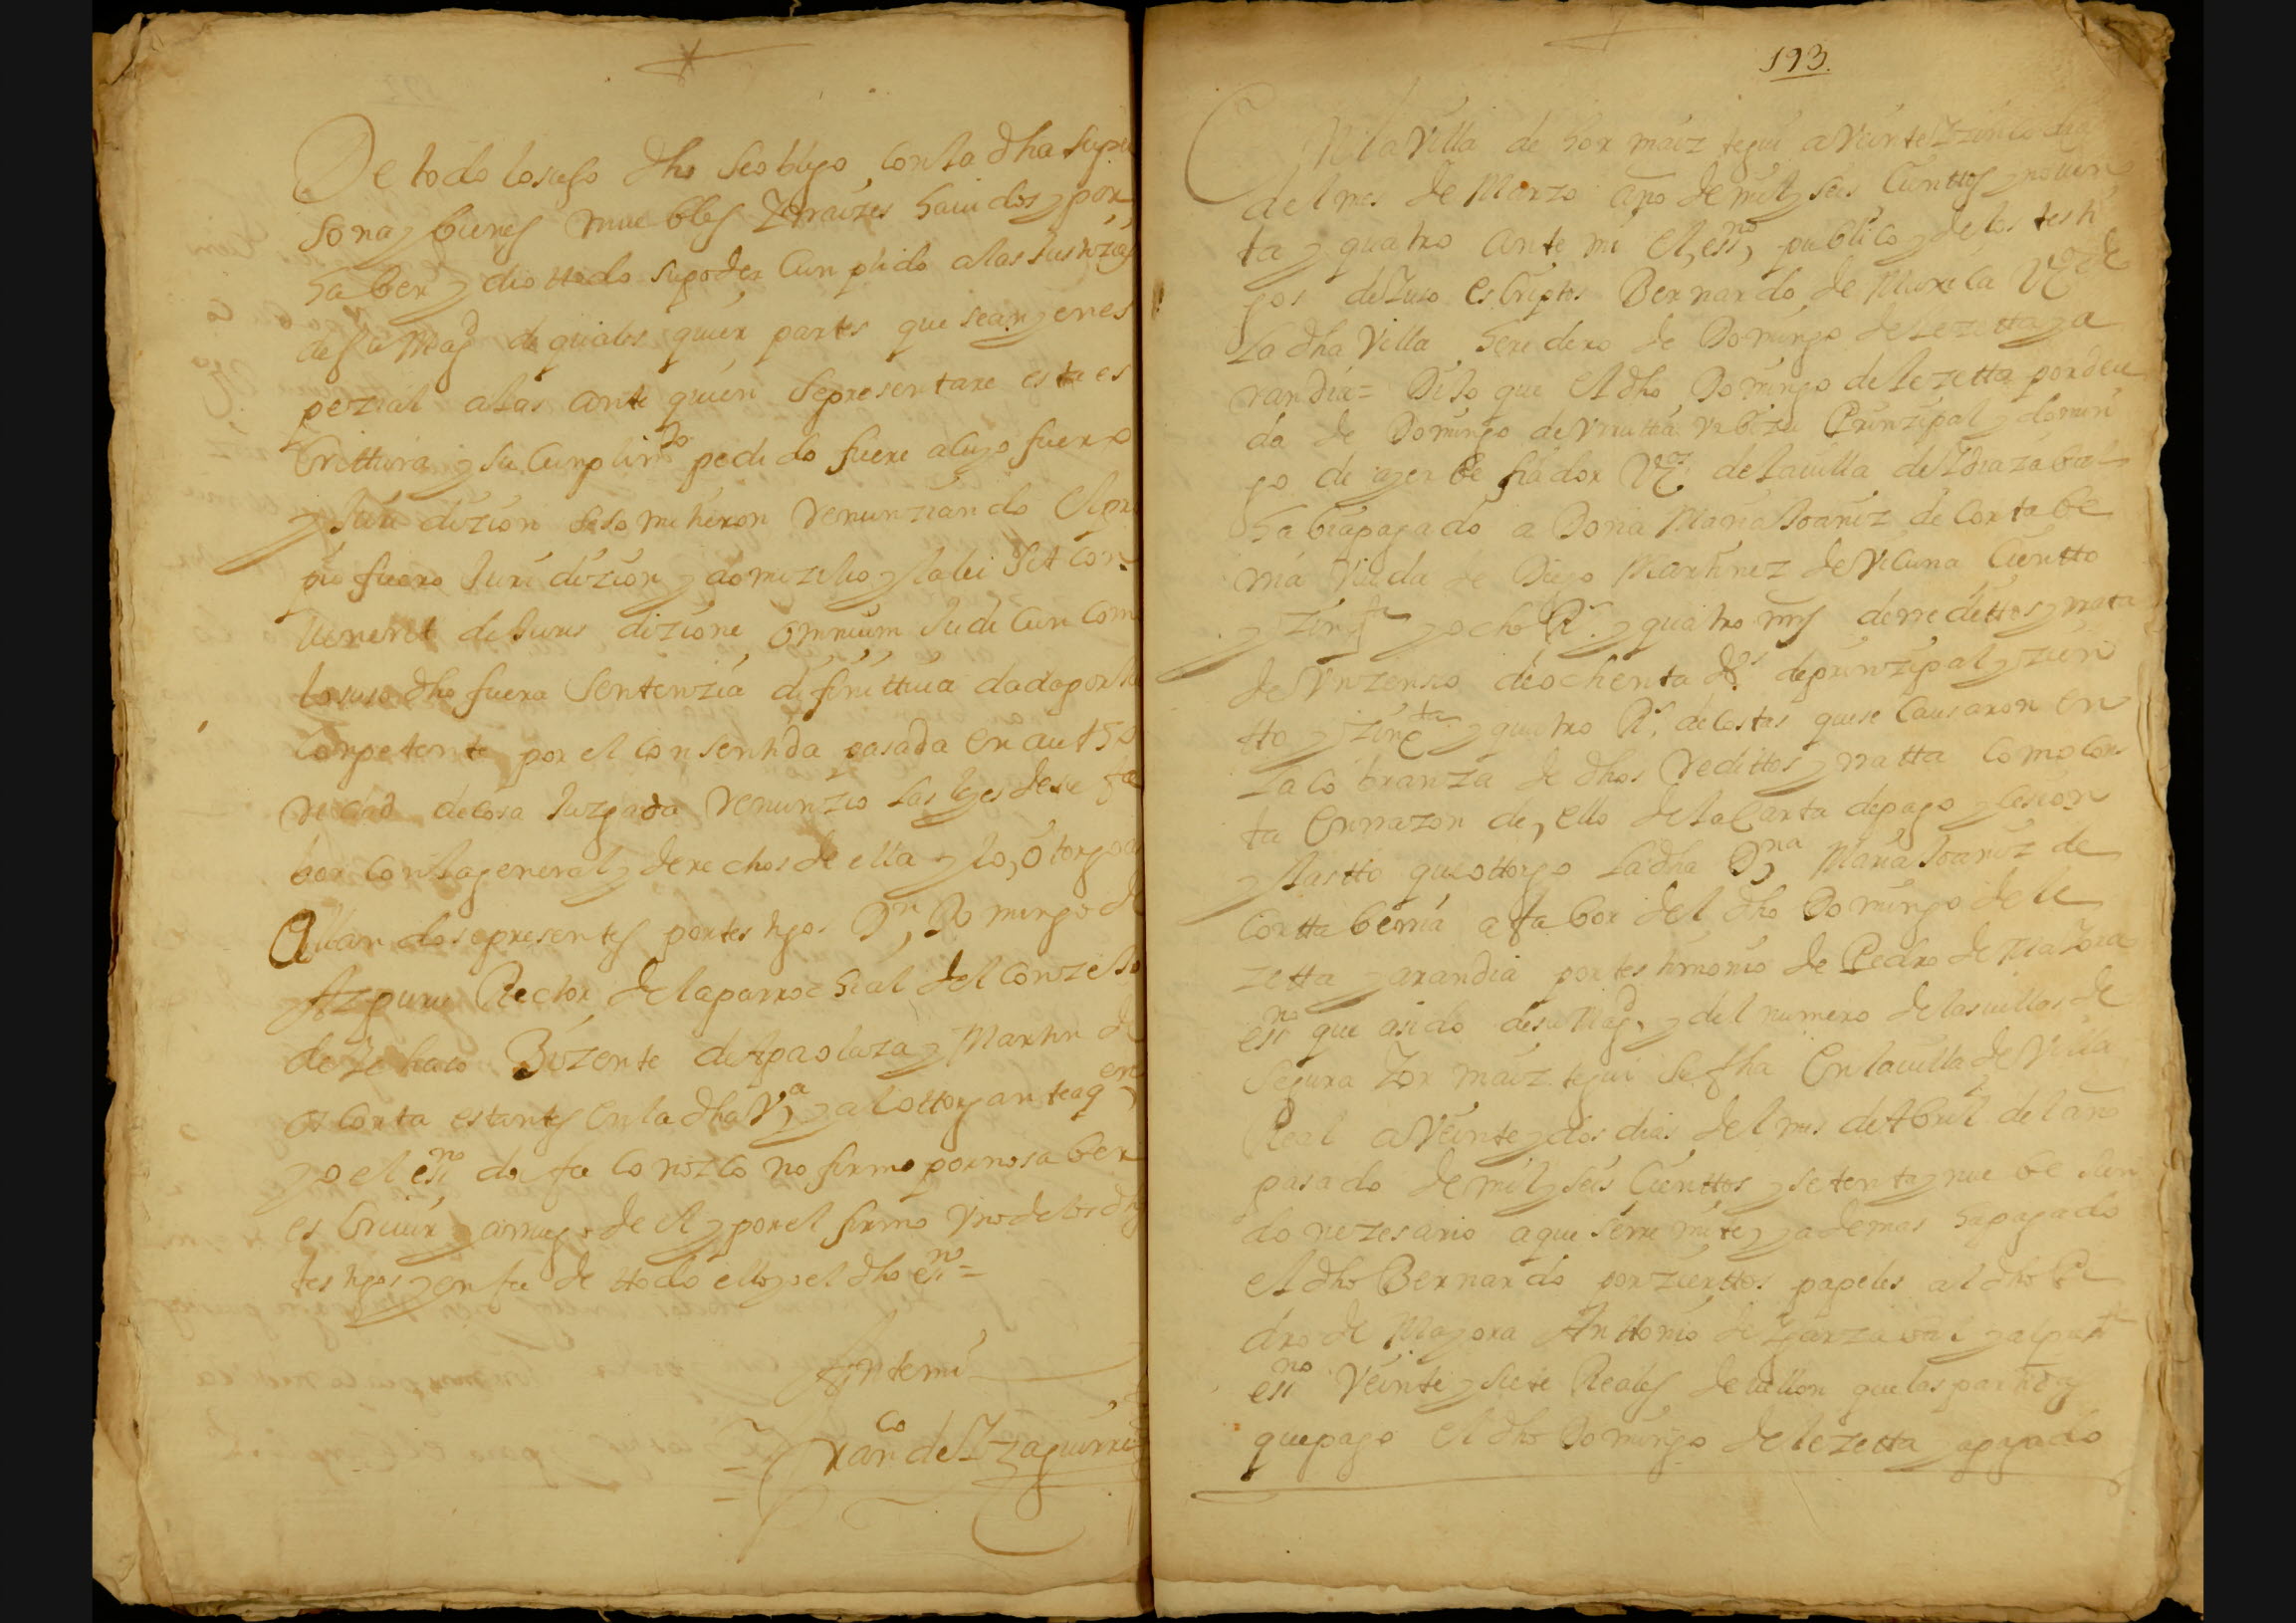 De todo lo suso dho se obligo con la dha su per
sona y bienes muebles y rraizes hauidos y por
haber y dio ttodo su poder cunplido a las Justizias
de su Magd de quales quier partes que sean y en es
pezial a las ante quien se presentare esta es
crittura y su cunplimto pedido fuere a cuyo fuero
y Juridizion se sometieron renunziando el pro
pio fuero Juridizion y domizilio y la lei sit con
benerit de Juris dizione omnium Judicun como
lo suso dho fuera sentenzia difinittiua dada por
conpetente por el consentida pasada en autto
ridad de cosa Juzgada renunzio las leyes de su fa
bor con la general y derechos de ella y lo otorgo
allandose presentes por testigos Dn Domingo de
Azpuru Rector de la parrochial del conzejo
de Bizente de Apaolaza y Martin de
ascorta estantes en la dha Va y al ottorgante a q en
yo el essno doi fee conozco no firmo por no saber
escriuir y a rruego de el y por el firmo vno de los dhos
testigos y en fee de ttodo ello yo el dho essno =
Ante mi
Franco de Yzaguirre
193.
En la Villa de hormaiztegui a Veinte y zinco dias
del mes de Marzo año de mil y seis Cienttos y noven
ta y quatro ante mi el essno publico y de los testi
gos de Yuso escriptos Bernardo de Murcia Vzo de
la dha Villa heredero de Domingo de Lezetta y a
randia = Dijo que el dho Domingo de Lezetta por deu
da de Domingo de Vrrutta Prinzipal y domin
go de ayerbe fiador Vzos de la uilla de Ydiazabal
habia pagado a Doña Maria Joaniz de Cortabe
rria Viuda de Diego Martinez de Vicuña Cientto
y zinqta y ocho Rs y quatro mrs de rredittos y rrata
de Vn zenso de ochenta ds de prinzipal y zien
tto y zinqta y quatro Rs de costas que se Causaron en
la cobranza de dhos redittos y rratta como cons
ta en rrazon de ello de la Carta de pago y cesion
y lastto que ottorgo la dha Dna Maria Joaniz de
Corttaberria a fabor del dho Domingo de le
zetta y arandia por testimonio de Pedro de Mayora
essno que a sido de su Magd y del numero de las uillas de
Segura y ormaiztegui su fha en la uilla de Villa
Real a Veinte y dos dias del mes de Abril del año
pasado de mil y seis Cienttos y setenta y nuebe sien
do nezesario a que se rremite y ademas ha pagado
el dho Bernardo por zierttos papeles al dho Pe
dro de Mayora Anttonio de Yarzaval y al prestte
essno Veinte y siete Reales de uellon que las partidas
que pago el dho Domingo de lezetta y a pagado